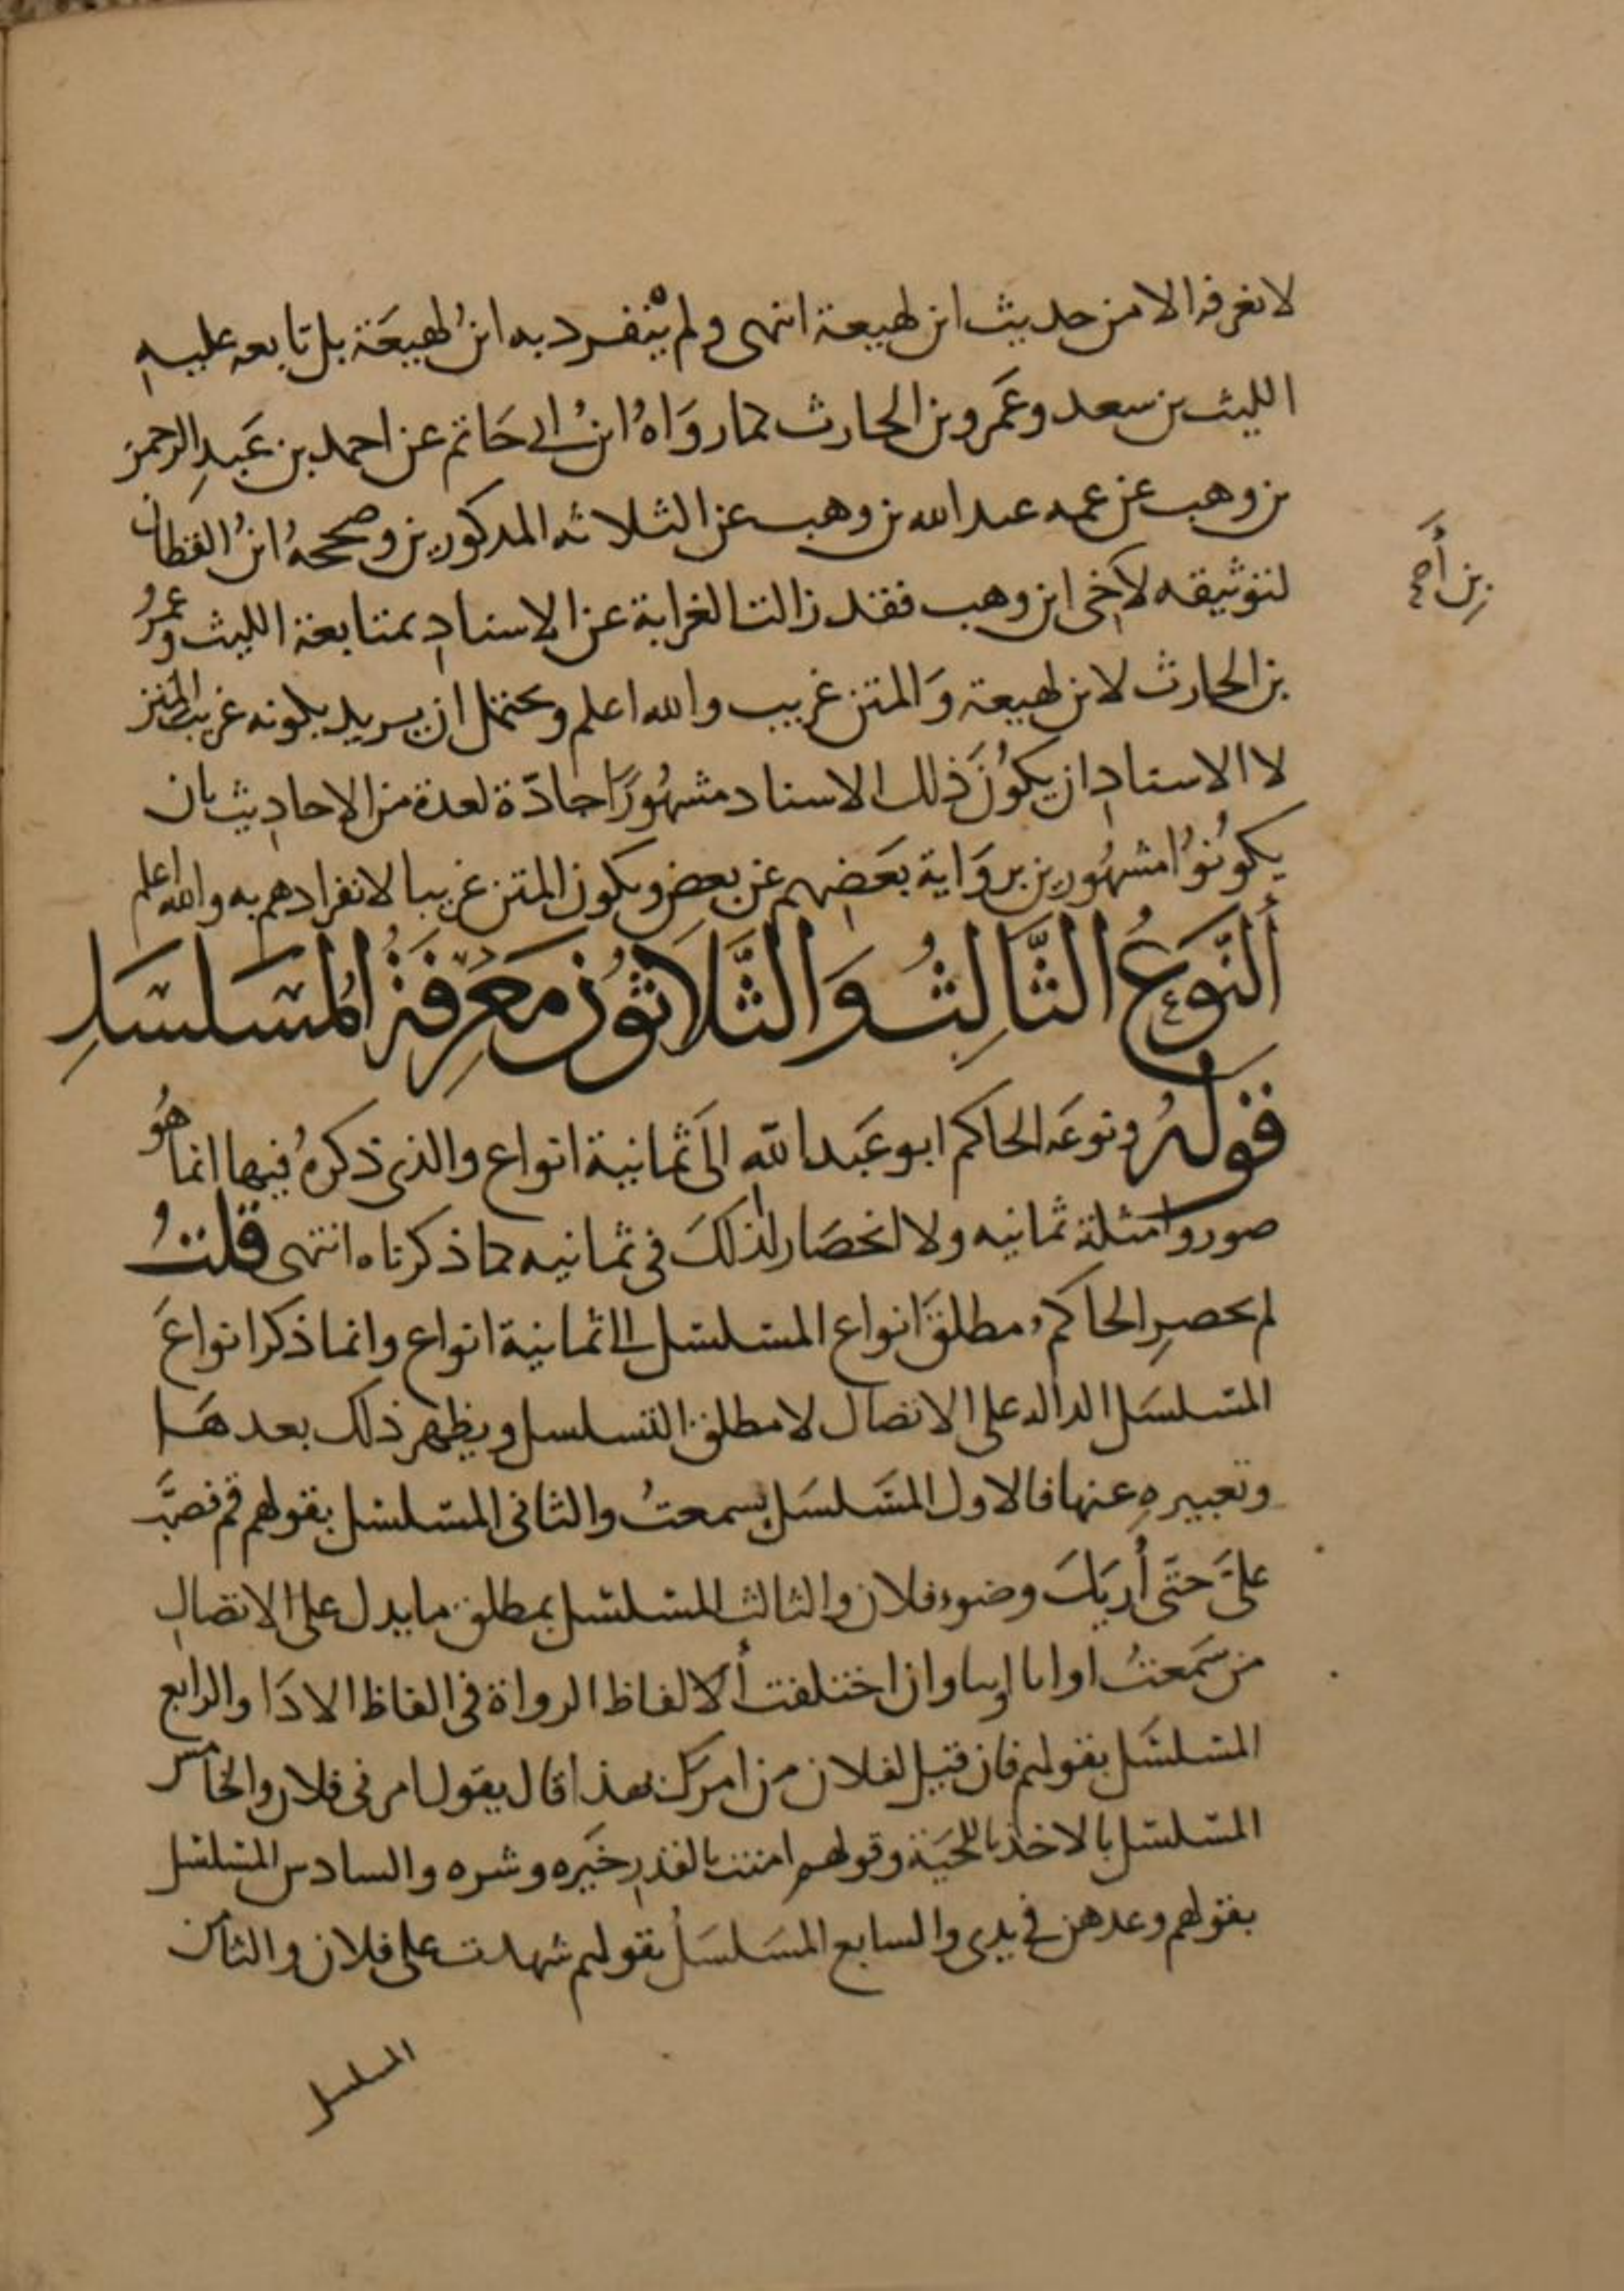 لا نعرفه الا من حديث ابن لهيعة انتهى ولم ينفرد به ابنُ لهيعَة بل تابعه عليه
الليث بن سعد وعَمرو بن الحارث كما روَاهُ ابنُ ابي حَاتم عن احمد بن عَبدِ الرحمن
بن وهب عن عمه عبد الله بن وهب عن الثلاثه المذكورين وصححهُ ابنُ القطان
لتوثيقه لاخي ابن وهب فقد زالت الغرابة عن الاسنادِ بمتابعة الليث وعمرو
بن الحارث لابن لهيعة وَالمتن غريب والله اعلم ويحتمل ان يريد بكونه غريب المتن
لا الاسنادِ ان يكوُنَ ذلك الاسناد مشهُورًا جادّة لعدة من الاحاديث بان
يكوُنوُا مشهُورين بروَاية بعَضِهم عن بعض ويكون المتن غريبا لانفرادهم به والله اعلم
أَلنَّوَعُ الثَّالِثُ وَالثَّلَاثوُن مَعَرِفَةُ المُسَلسَلِ
قوَلهُ ونوعَه الحاكم ابو عَبد الله الىَ ثمانية انواع والذي ذكرهُ فيها انما هوُ
صور وامثلة ثمانيه ولا انحصَار لذلكَ في ثمانيه كما ذكرناه انتهى قلتُ
لم يحصرِ الحاكم مطلقَ انواع المسلسل الى ثمانية انواع وانما ذكر انواعَ
المسلسَل الداله على الاتصال لا مطلق التسلسل ويظهر ذلك بعدهَا
وتعبيرهِ عنها فالاول المسَلسَل بسمعتُ والثاني المسلسل بقولهم قم فصبَّ
عليَّ حتَى أُريَكَ وضوء فلان والثالث المسلسل بمطلق ما يدل على الاتصال
من سَمعتُ او انا او ثنا وان اختلفت ألالفاظ الرواة في الفاظ الادَا والرابع
المسلسَل بقولهم فان قيل لفلان من امرَك بهذا قال يقول امرني فلان والخامس
المسلسل بالاخذ باللحيَة وقولهم امنت بالقدرِ خيَره وشره والسادس المسلسل
بقولهم وعدهن في يدي والسابع المسَلسَلُ بقولهم شهدت على فلان والثامن
المسلسل
بن أَحمد